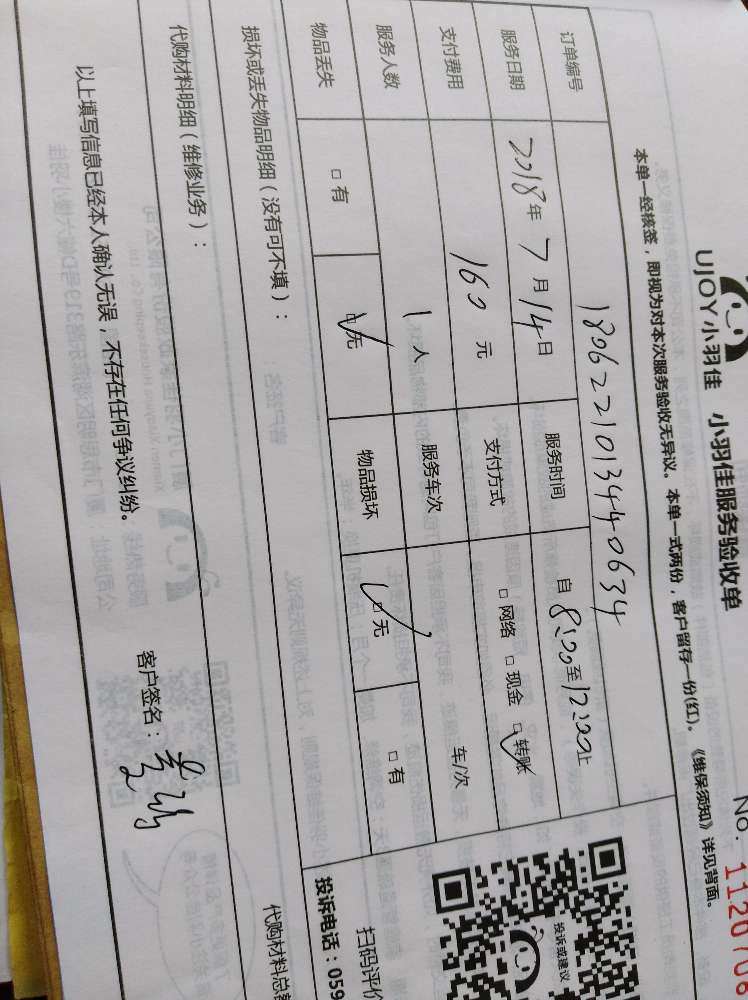 UJOY小羽佳 小羽佳服务验收单
No: 1120706
本单一经核签，即视为对本次服务验收无异议。本单一式两份，客户留存一份(红)。《维保须知》详见背面。
订单编号 180622101344 0634
服务日期 2018年7月14日 服务时间 自8:00至12:00止
支付费用 160元 支付方式 □网络 □现金 ☑转账
服务人数 1人 服务车次 车/次
物品丢失 □有 ☑无 物品损坏 ☑无 □有
损坏或丢失物品明细（没有可不填）：
代购材料明细（维修业务）：
代购材料总
以上填写信息已经本人确认无误，不存在任何争议纠纷。
客户签名：
投诉或建议
扫码评价
投诉电话：059